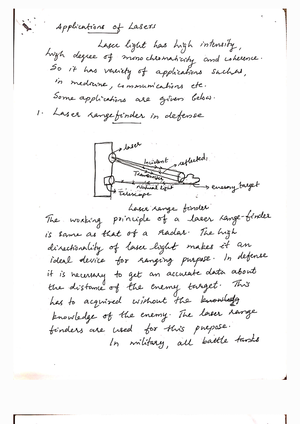 Applications of Lasers
Laser light has high intensity,
high degree of monochromaticity and coherence.
So it has variety of applications such as,
in medicine, communications etc.
Some applications are given below.
1. Laser rangefinder in defense
laser
Incident
reflected
Transmitter
enemy target
Telescope
Laser range finder
The working principle of a laser range-finder
is same as that of a Radar. The high
directionality of laser light makes it an
ideal device for ranging purpose. In defense
it is necessary to get an accurate data about
the distance of the enemy target. This
has to acquired without the
knowledge of the enemy. The laser range
finders are used for this purpose.
In military, all battle tanks